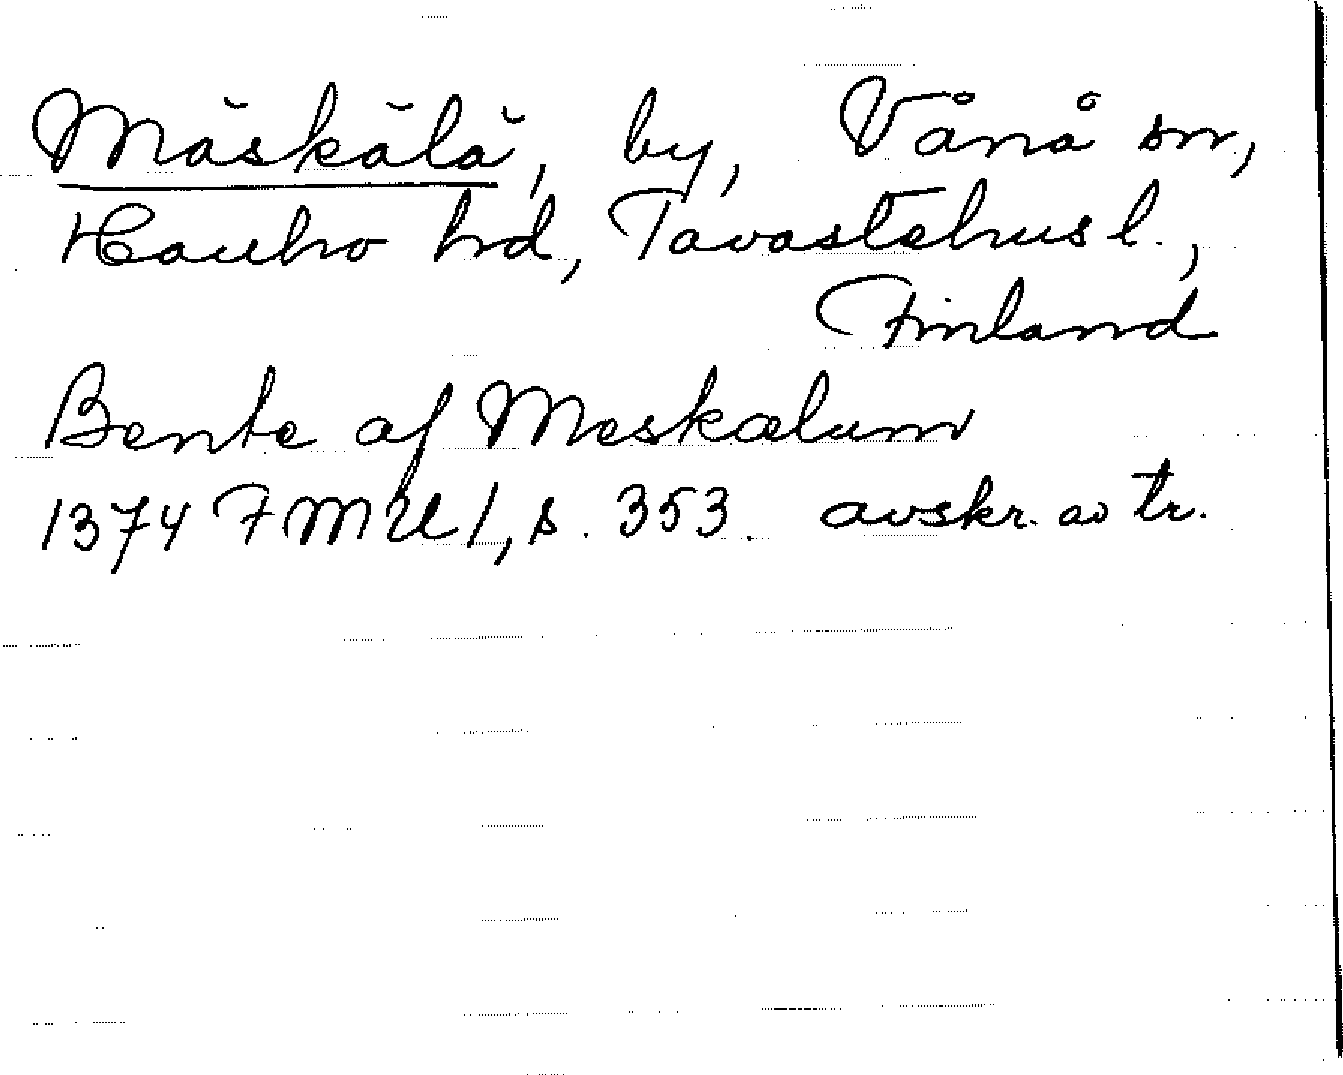 Mäskälä, by, Vånå sn,
Hauho hd, Tavastehus l.,
Finland
Benta af Meskælum
1374 FMU 1, s. 353. avskr. av tr.